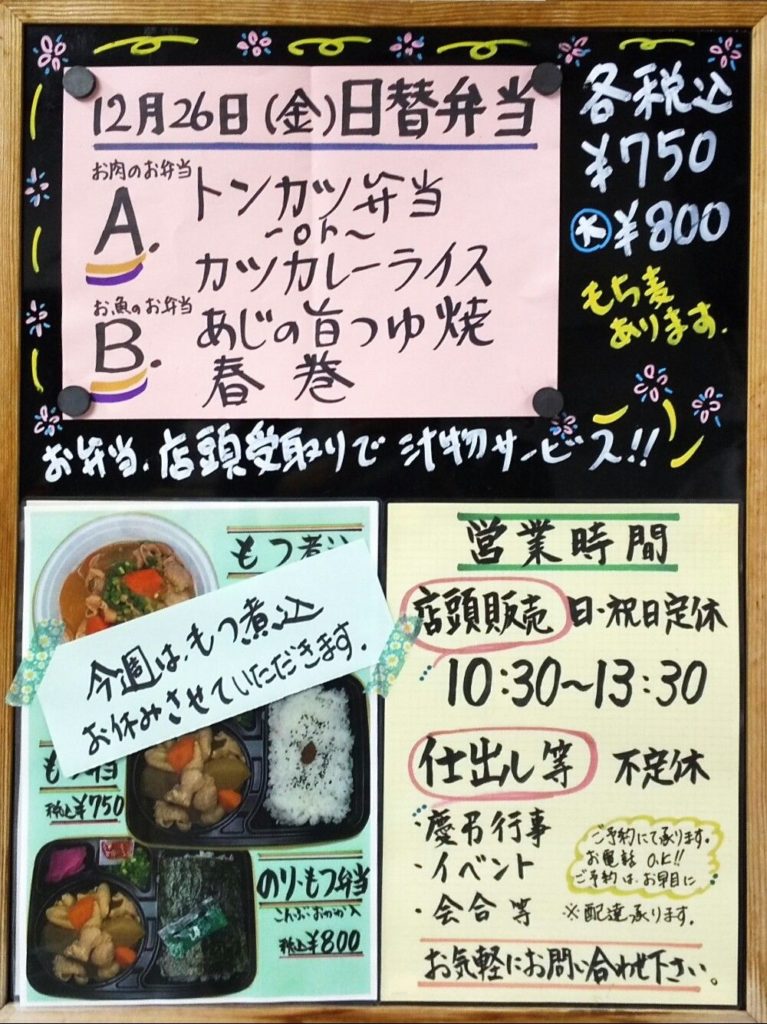 12月26日(金)日替弁当
お肉のお弁当
A.
トンカツ弁当
~or~
カツカレーライス
お魚のお弁当
B.
あじの旨つゆ焼
春巻
各税込
¥750
大 ¥800
もち麦
あります.
お弁当、店頭受取りで 汁物サービス!!
もつ煮込
今週は、もつ煮込
お休みさせていただきます.
税込¥750
のり・もつ弁当
こんぶ・おかか入
税込¥800
営業時間
店頭販売 日・祝日定休
10:30~13:30
仕出し等 不定休
・慶弔行事
・イベント
・会合等
ご予約にて承ります。
お電話 O.K!!
ご予約は、お早目に
※配達承ります.
お気軽にお問い合わせ下さい。